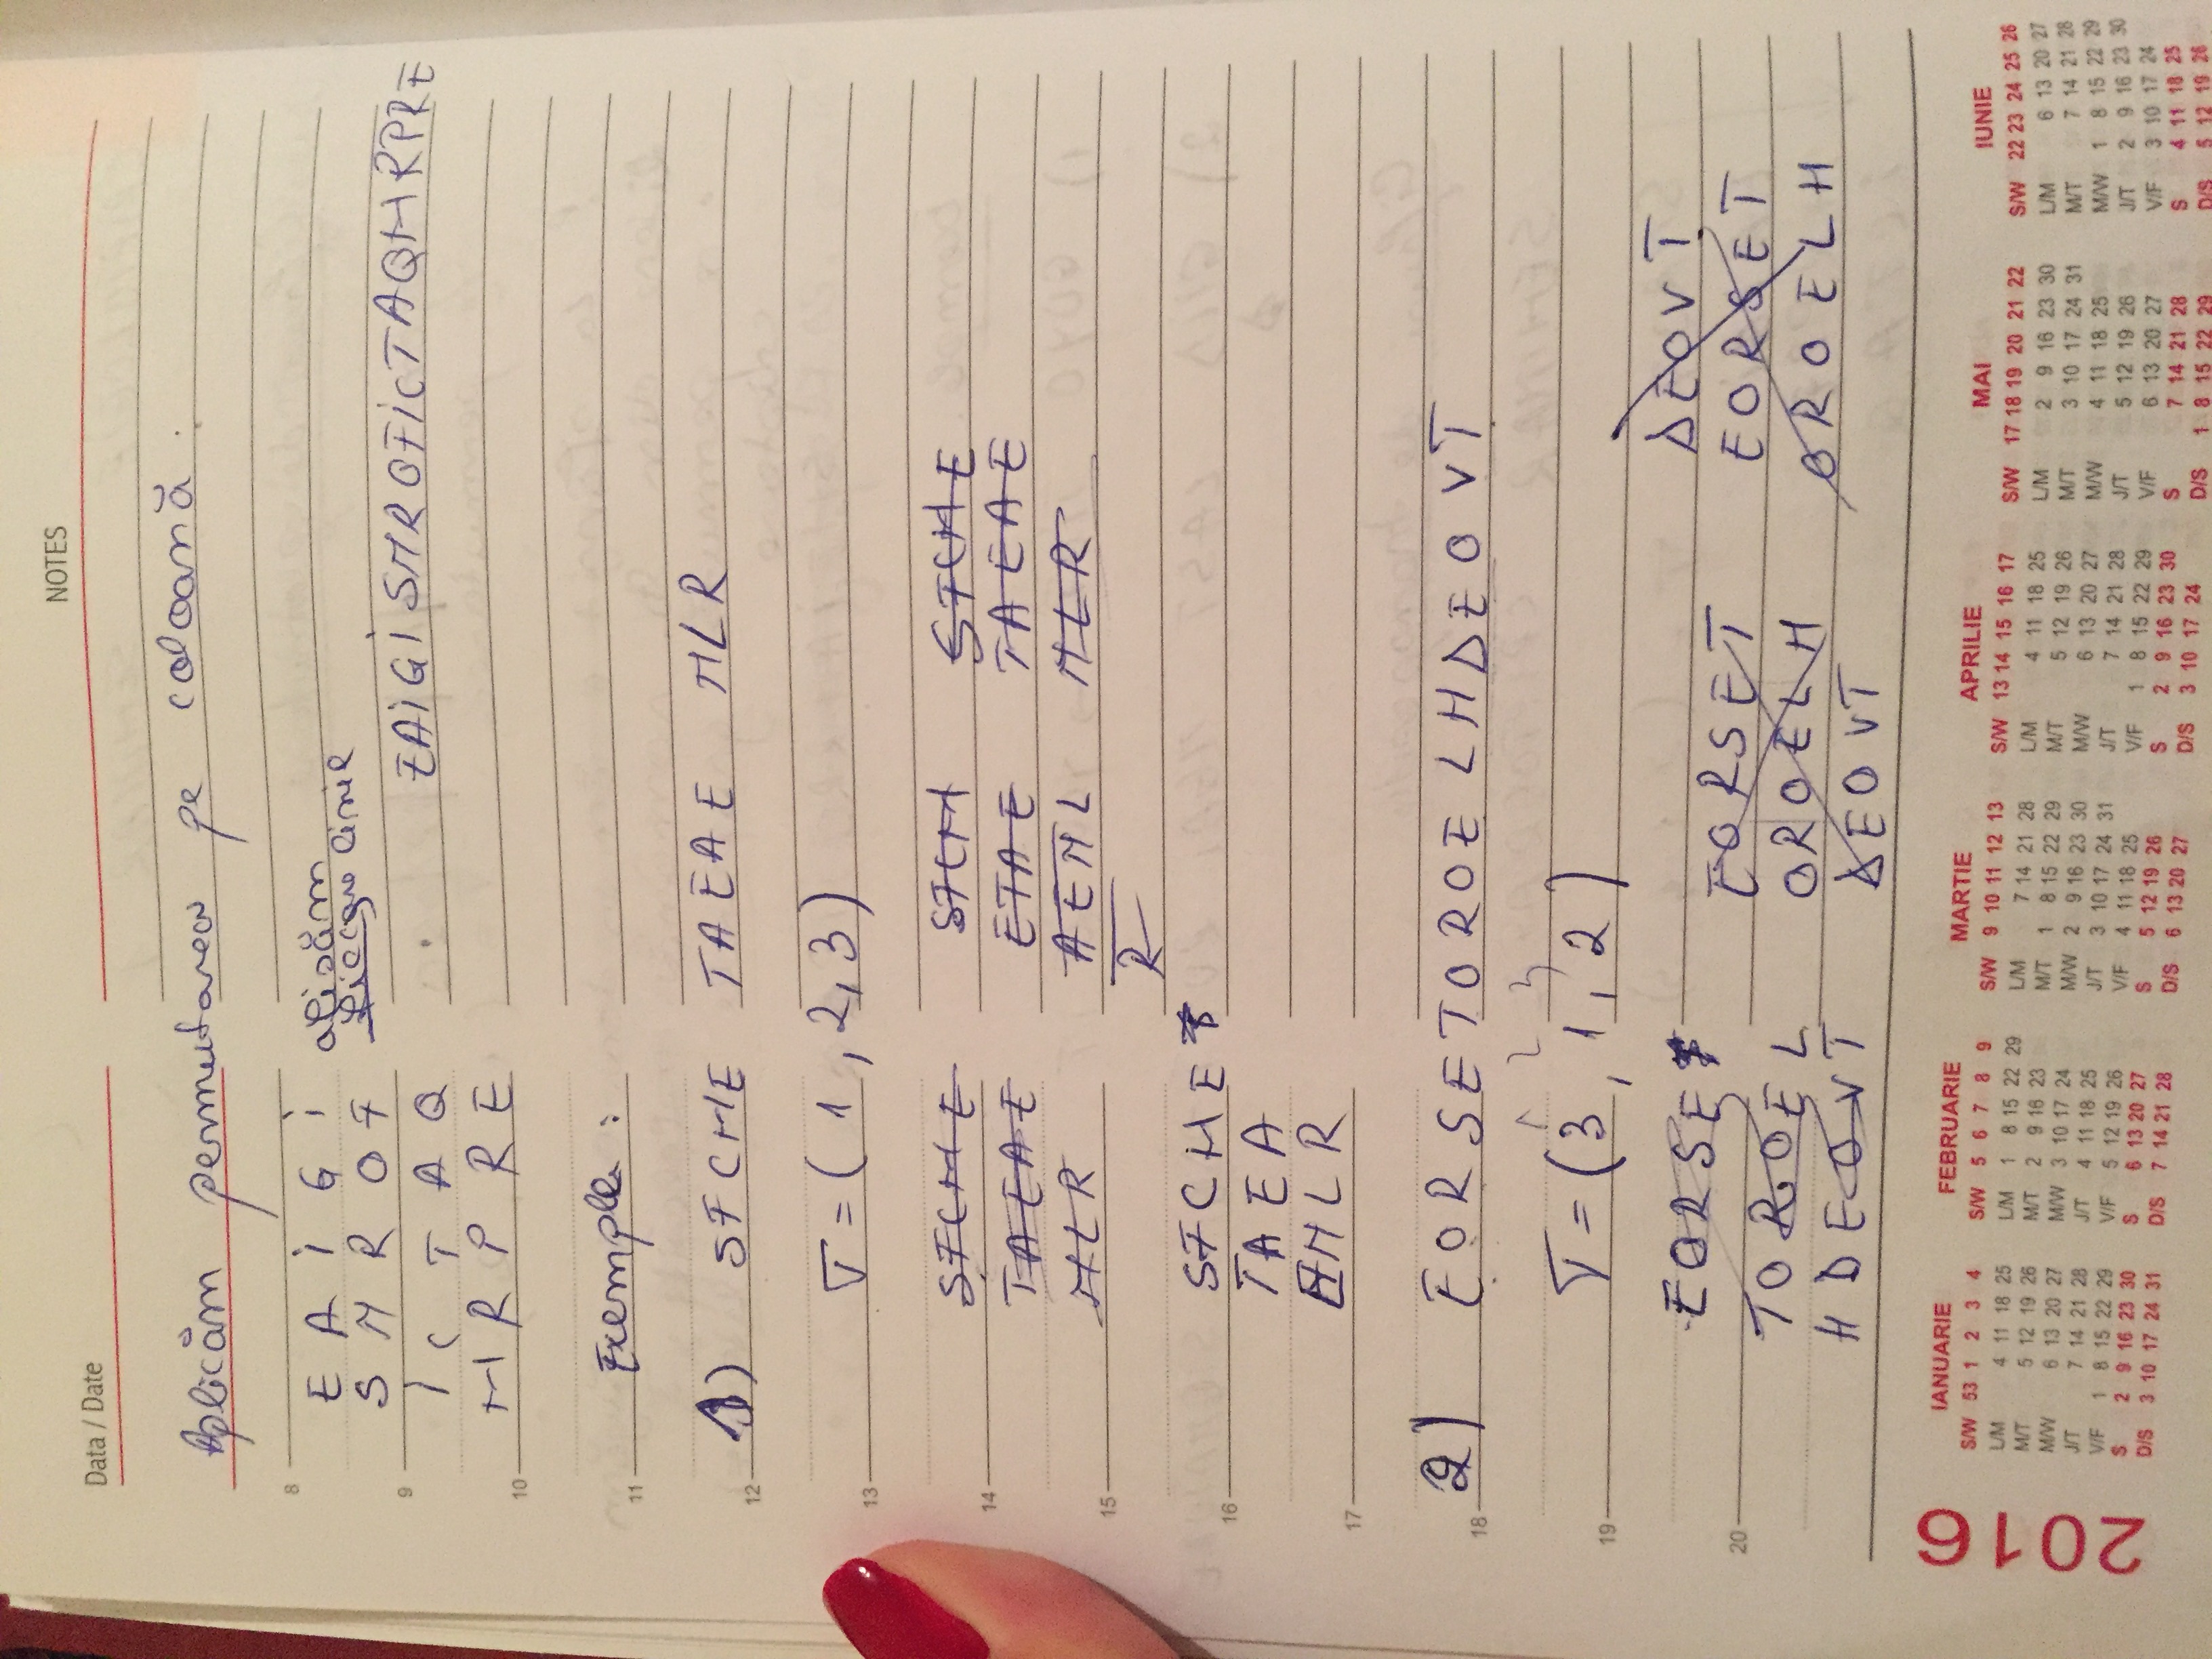 NOTES
Data / Date
Aplicăm permutarea pe coloană.
8
E A I G I afișăm
S M R O F linie
9
EAIGISMROFICTAQMRPRE
I C T A Q
M R P R E
10
Exemple :
11
1) SFCME TAEAE MLR
12
σ = ( 1 , 2, 3 )
13
SFCME SFCM SFCME
14
TAEAE ETAE TAEAE
MLR AEML MLR
15
R
SFCME
16
TAEA
EMLR
17
2) EORSETOROELHDEOVT
18
1 2 3
σ = ( 3 , 1 , 2 )
19
DEOVT
EORSE
EORSET EORSET
20
TOROEL
OROELH OROELH
HDEOVT
DEOVT
2016
IANUARIE
S/W 53 1 2 3 4
L/M 4 11 18 25
M/T 5 12 19 26
M/W 6 13 20 27
J/T 7 14 21 28
V/F 1 8 15 22 29
S 2 9 16 23 30
D/S 3 10 17 24 31
FEBRUARIE
S/W 5 6 7 8 9
L/M 1 8 15 22 29
M/T 2 9 16 23
M/W 3 10 17 24
J/T 4 11 18 25
V/F 5 12 19 26
S 6 13 20 27
D/S 7 14 21 28
MARTIE
S/W 9 10 11 12 13
L/M 7 14 21 28
M/T 1 8 15 22 29
M/W 2 9 16 23 30
J/T 3 10 17 24 31
V/F 4 11 18 25
S 5 12 19 26
D/S 6 13 20 27
APRILIE
S/W 13 14 15 16 17
L/M 4 11 18 25
M/T 5 12 19 26
M/W 6 13 20 27
J/T 7 14 21 28
V/F 1 8 15 22 29
S 2 9 16 23 30
D/S 3 10 17 24
MAI
S/W 17 18 19 20 21 22
L/M 2 9 16 23 30
M/T 3 10 17 24 31
M/W 4 11 18 25
J/T 5 12 19 26
V/F 6 13 20 27
S 7 14 21 28
D/S 1 8 15 22 29
IUNIE
S/W 22 23 24 25 26
L/M 6 13 20 27
M/T 7 14 21 28
M/W 1 8 15 22 29
J/T 2 9 16 23 30
V/F 3 10 17 24
S 4 11 18 25
D/S 5 12 19 26